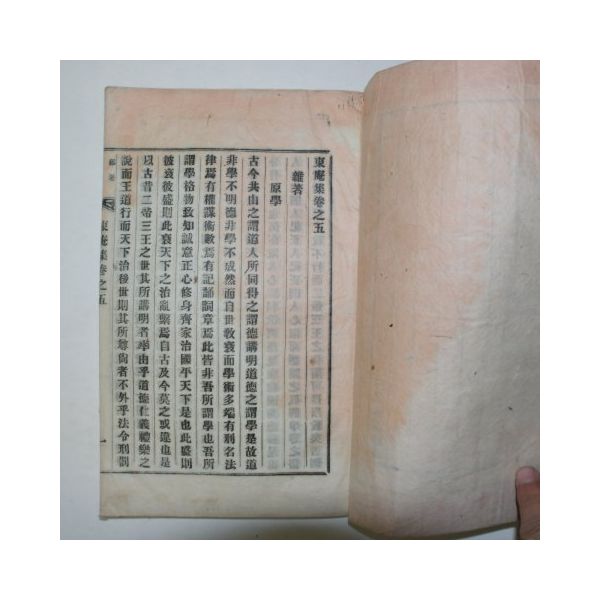 東庵集卷之五
雜著
原學
古今共由之謂道人所同得之謂德講明道德之謂學是故道
非學不明德非學不成然而自世敎衰而學術多端有刑名法
律焉有權謀術數焉有記誦詞章焉此皆非吾所謂學也吾所
謂學格物致知誠意正心修身齊家治國平天下是也此盛則
彼衰彼盛則此衰天下之治亂繫焉自古及今莫之或違也是
以古昔二帝三王之世其所講明者率由乎道德仁義禮樂之
說而王道行而天下治後世則其所尊尙者不外乎法令刑罰
東庵集卷之五
一